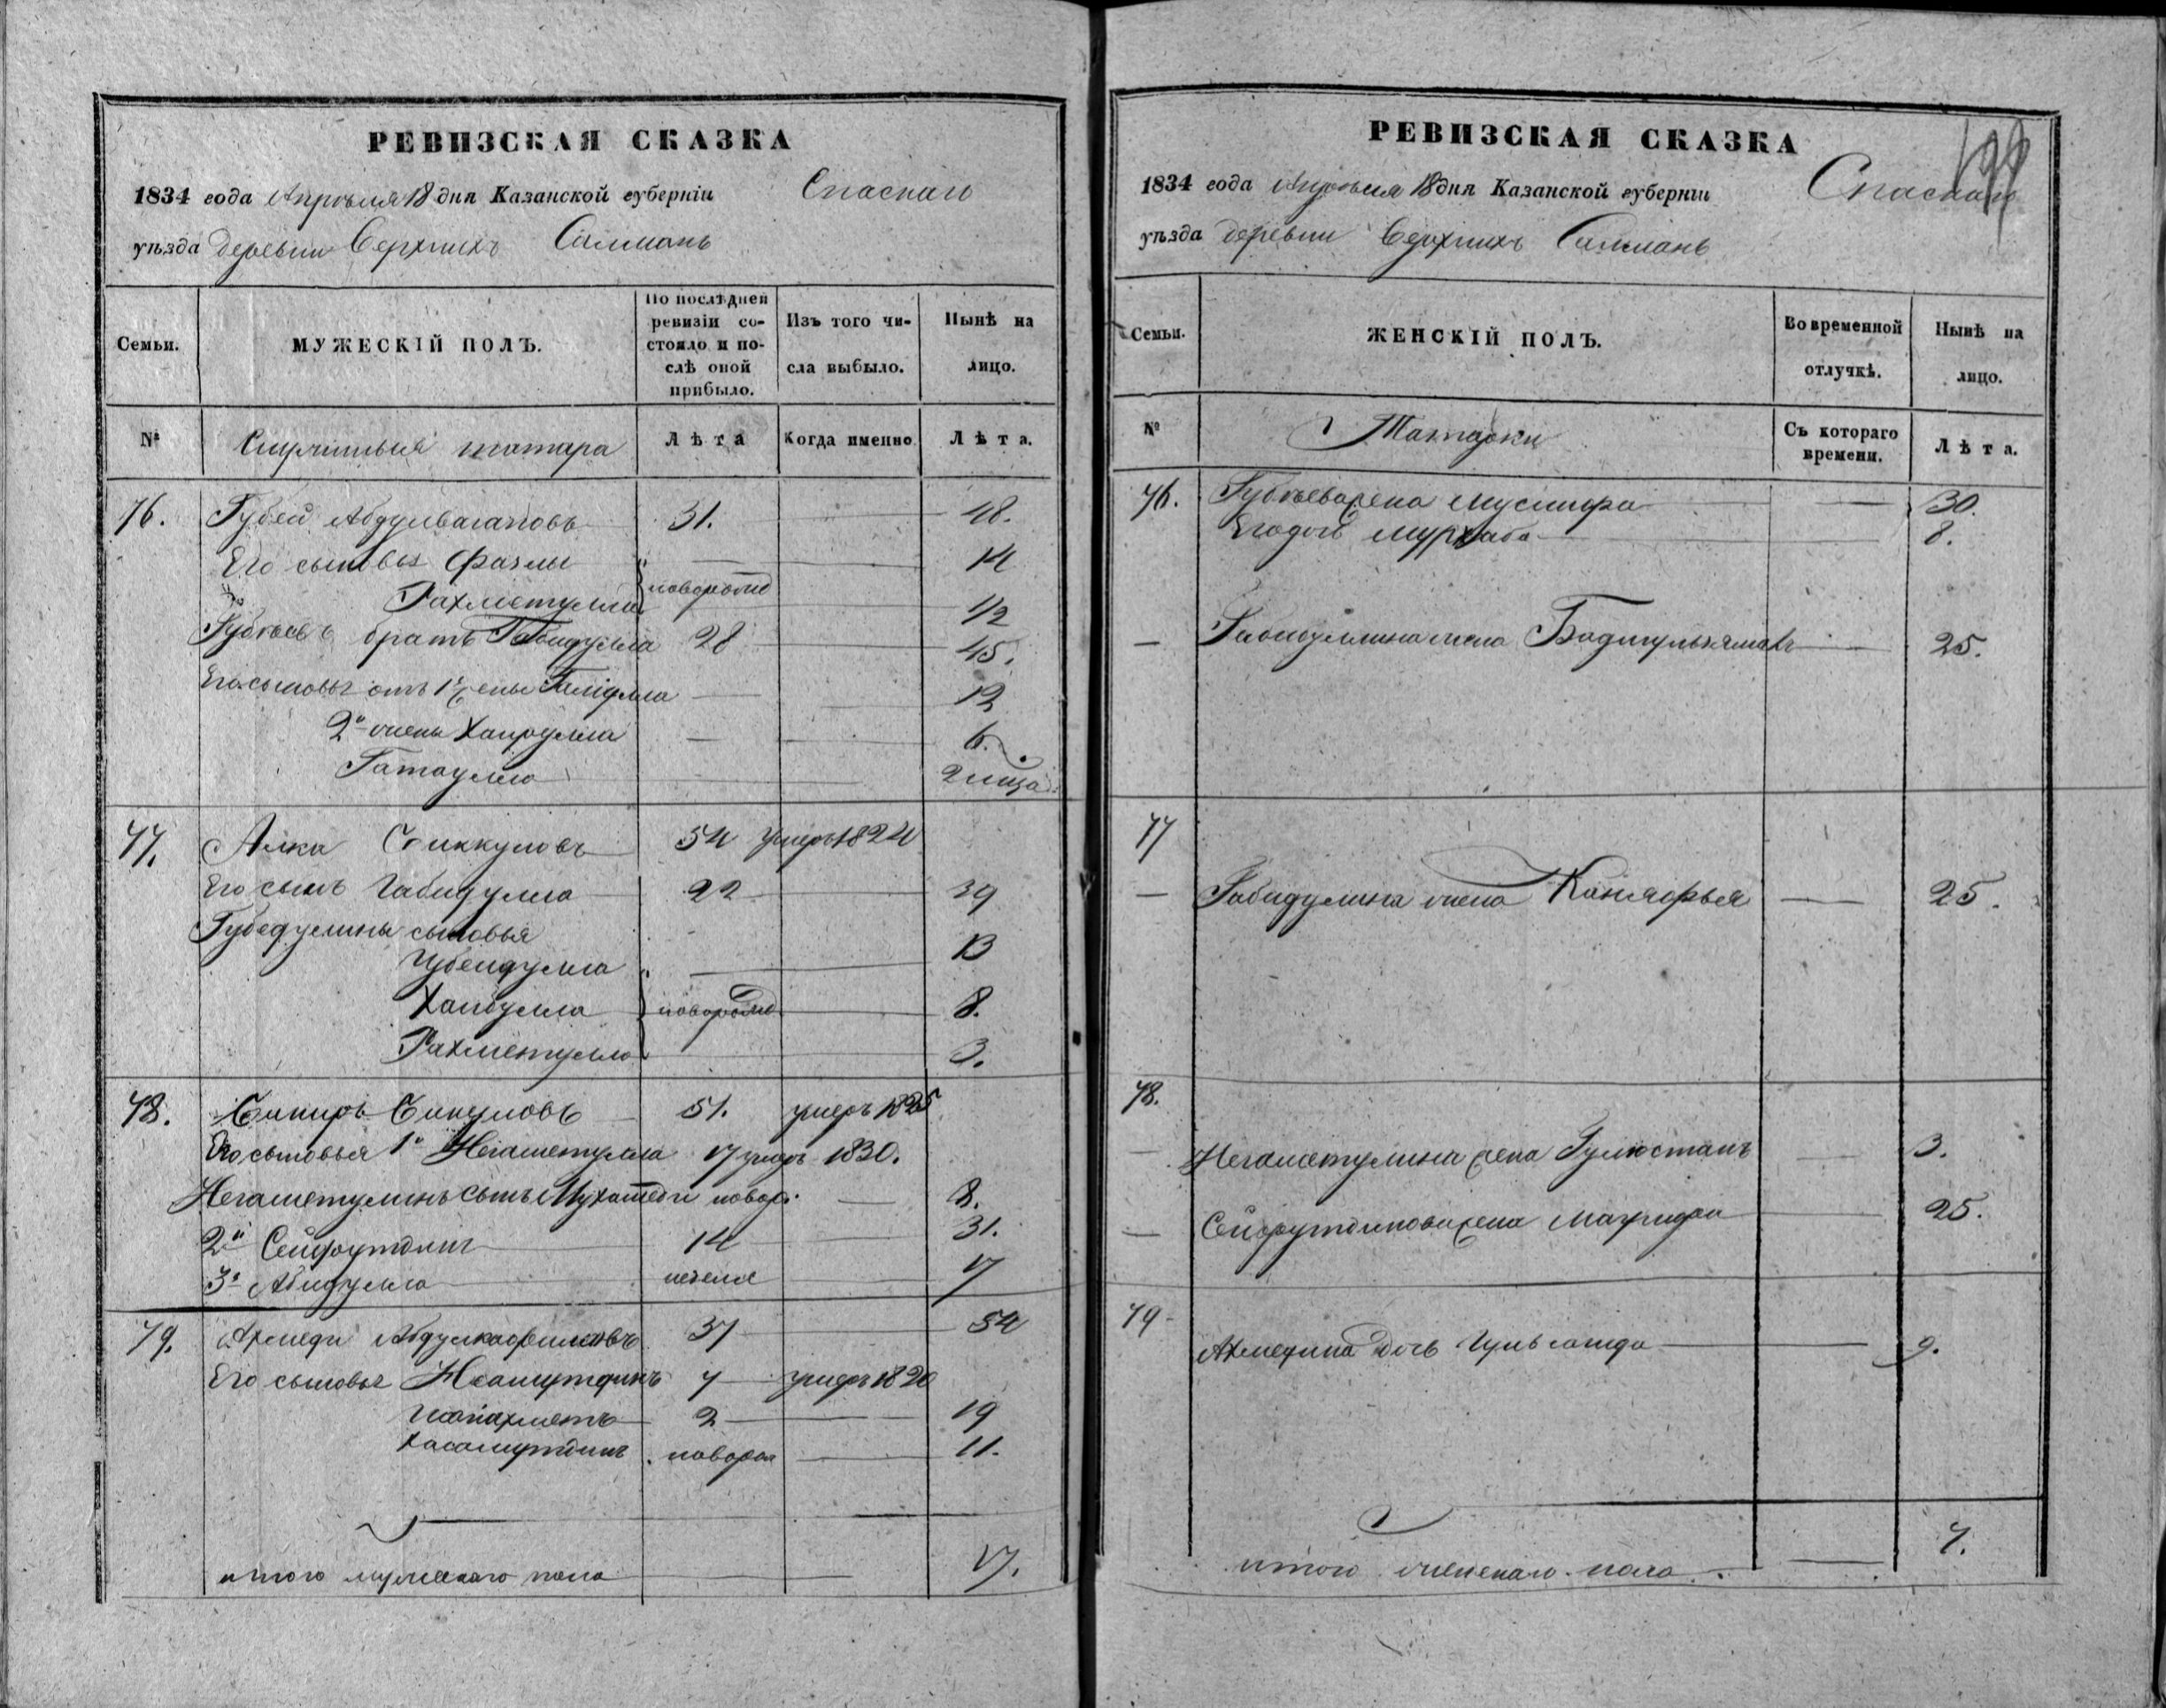 РЕВИЗСКАЯ СКАЗКА
1834 года Апреля 18 дня Казанской губерніи Спаскаго
уѣзда деревни Верхнихъ Салманъ
Семьи.
МУЖЕСКІЙ ПОЛЪ.
По послѣдней ревизіи состояло и послѣ оной прибыло.
Изъ того числа выбыло.
Нынѣ на лицо.
№
Служилыя татара
Лѣта
Когда именно
Лѣта.
76. Губей Абдулвагаповъ 31. 48.
Его сыновья Фазлы 14
Рахметулла новорожд 12
Губеевъ братъ Габидулла 28 45.
Его сыновья отъ 1й жены 12
2й жены Хайрулла 6.
Гатаулла 2 месца
77. Алка Сиккуловъ 54 умеръ 1824
Его сынъ Габидулла 22 39
сыновья
Губейдулла 13
Хабулла новорожд 8.
Рахметулла 3.
78. Бикуловъ 51. умеръ 1825
Его сыновья 1й Негаметулла 17 умеръ 1830.
Негаметулинъ сынъ Мухамеди новор. 8.
2й Сейфутдинъ 14 31.
3й Абидулла неделя 17
79. Ахмеди 37 54
Его сыновья 7 умеръ 1820
2 19
Хасамутдинъ новорож 11.
итого мужескаго пола 17.
РЕВИЗСКАЯ СКАЗКА
1834 года Апреля 18 дня Казанской губерніи Спаскаго
уѣзда деревни Верхнихъ Салманъ
Семьи.
ЖЕНСКІЙ ПОЛЪ.
Во временной отлучкѣ.
Нынѣ на лицо.
№
Татарки
Съ котораго времени.
Лѣта.
76. Губеева жена 30.
Его дочь 8.
Габидуллина жена 25.
77
Габидулина жена 25.
78.
Негаметулина жена Гулюстанъ 3.
Сейфутдинова жена 25.
79
Ахмедина дочь 9.
итого женскаго пола 7.